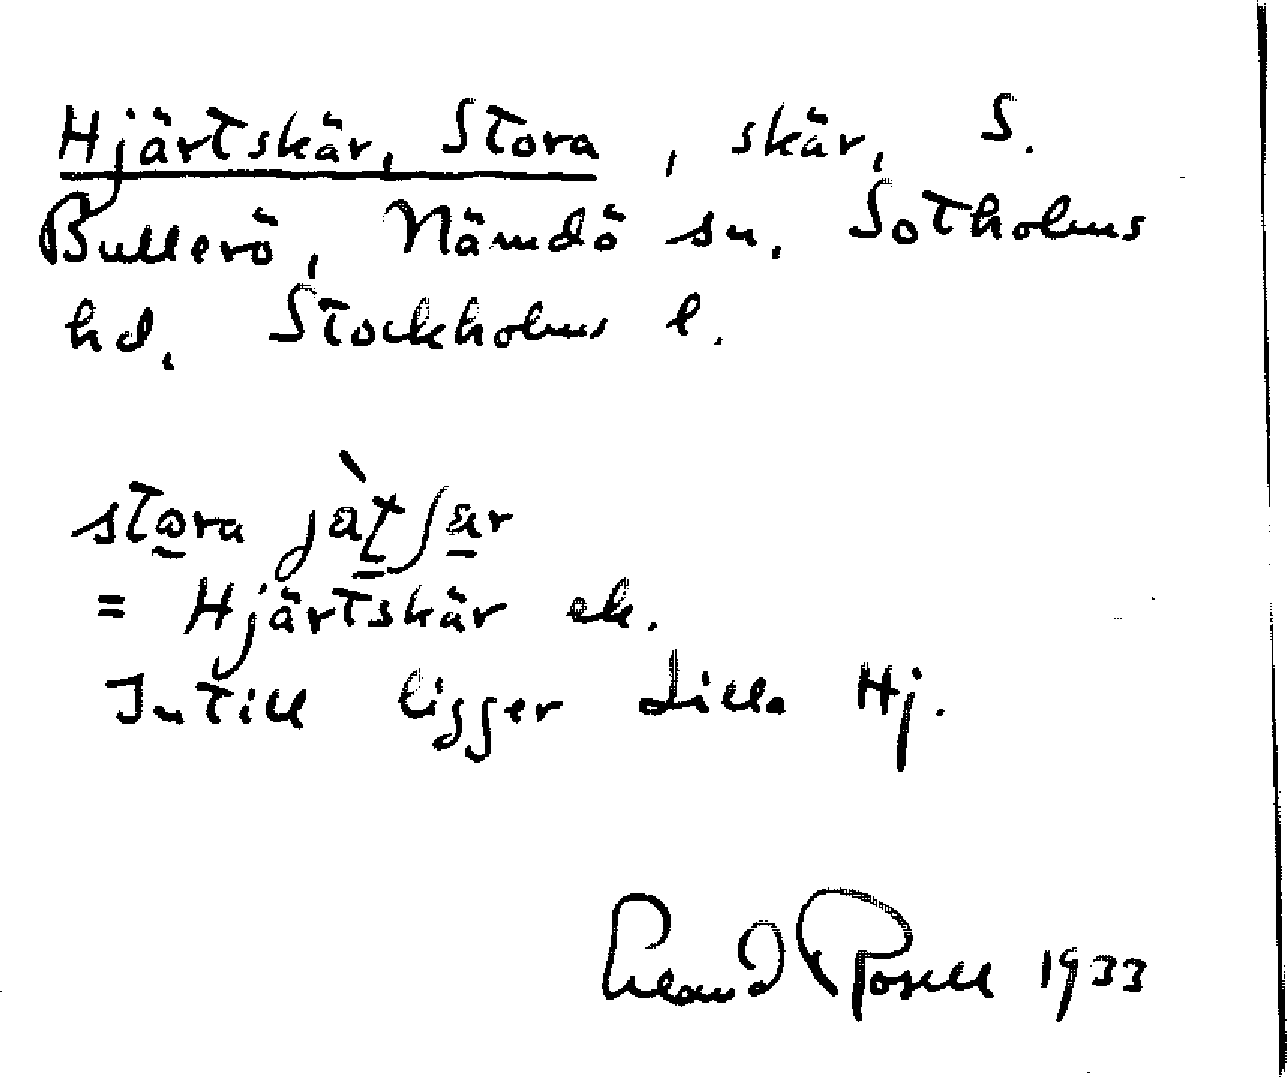 Hjärtskär, Stora, skär, S.
Bullerö, Nämdö sn. Sotholms
hd. Stockholms l.
stora jàtʃär
= Hjärtskär ek.
Intill ligger Lilla Hj.
Erland Rosell 1933